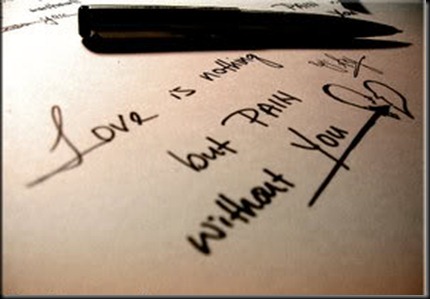 Love is nothing
but PAIN
without You